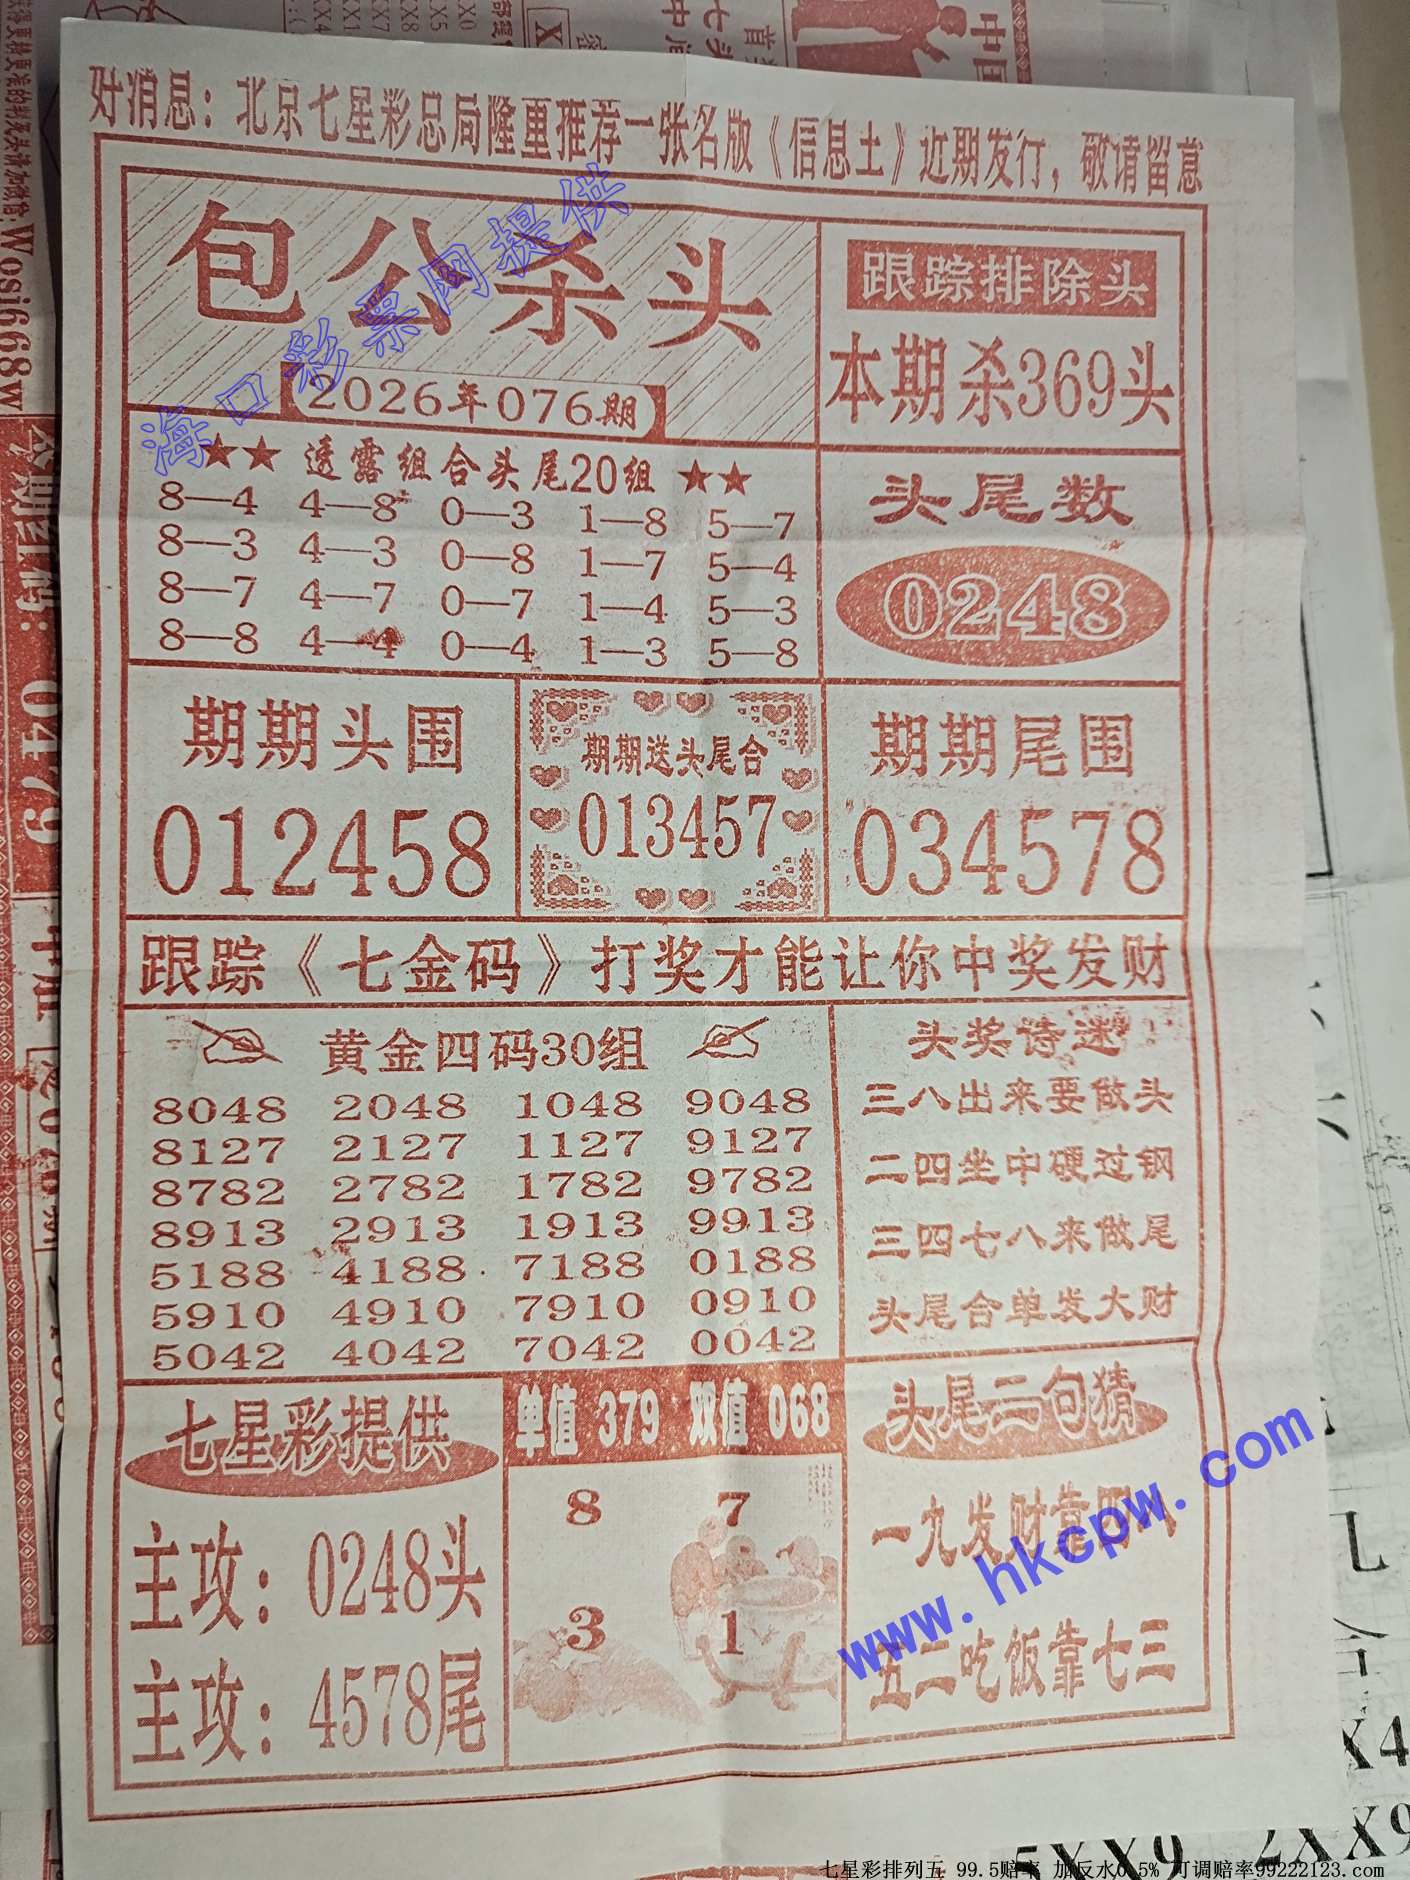 好消息：北京七星彩总局隆重推荐一张名版《信息土》近期发行，敬请留意
包公杀头
2026年076期
海口彩票网提供
跟踪排除头
本期杀369头
★★ 透露组合头尾20组 ★★
8—4 4—8 0—3 1—8 5—7
8—3 4—3 0—8 1—7 5—4
8—7 4—7 0—7 1—4 5—3
8—8 4—4 0—4 1—3 5—8
头尾数
0248
期期头围
012458
期期送头尾合
013457
期期尾围
034578
跟踪《七金码》打奖才能让你中奖发财
黄金四码30组
8048 2048 1048 9048
8127 2127 1127 9127
8782 2782 1782 9782
8913 2913 1913 9913
5188 4188 7188 0188
5910 4910 7910 0910
5042 4042 7042 0042
头奖诗迷
三八出来要做头
二四坐中硬过钢
三四七八来做尾
头尾合单发大财
七星彩提供
主攻：0248头
主攻：4578尾
单值 379 双值 068
8 7
3 1
头尾二句猜
一九发财靠四八
五二吃饭靠七三
www.hkcpw.com
Wosi668w
0479
5XX9 2XX9
七星彩排列五 99.5赔率 加反水0.5% 可调赔率99222123.com